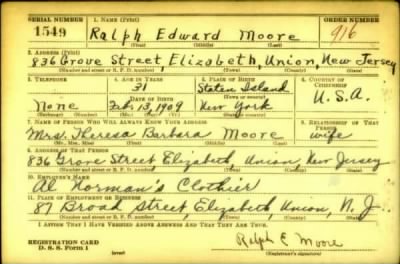 SERIAL NUMBER 1. NAME (Print) ORDER NUMBER
1549 Ralph Edward Moore 916
(First) (Middle) (Last)
2. ADDRESS (Print)
836 Grove Street, Elizabeth, Union, New Jersey
(Number and street or R. F. D. number) (Town) (County) (State)
3. TELEPHONE 4. AGE IN YEARS 5. PLACE OF BIRTH 6. COUNTRY OF CITIZENSHIP
31 Staten Island
DATE OF BIRTH (Town or county) U.S.A.
None Feb. 13, 1909 New York
(Exchange) (Number) (Mo.) (Day) (Yr.) (State or country)
7. NAME OF PERSON WHO WILL ALWAYS KNOW YOUR ADDRESS 8. RELATIONSHIP OF THAT PERSON
Mrs. Theresa Barbara Moore wife
(Mr., Mrs., Miss) (First) (Middle) (Last)
9. ADDRESS OF THAT PERSON
836 Grove Street Elizabeth, Union, New Jersey
(Number and street or R. F. D. number) (Town) (County) (State)
10. EMPLOYER'S NAME
Al Norman's Clothier
11. PLACE OF EMPLOYMENT OR BUSINESS
87 Broad Street, Elizabeth, Union, N. J.
(Number and street or R. F. D. number) (Town) (County) (State)
I AFFIRM THAT I HAVE VERIFIED ABOVE ANSWERS AND THAT THEY ARE TRUE.
REGISTRATION CARD Ralph E Moore
D. S. S. Form 1 (over) (Registrant's signature)